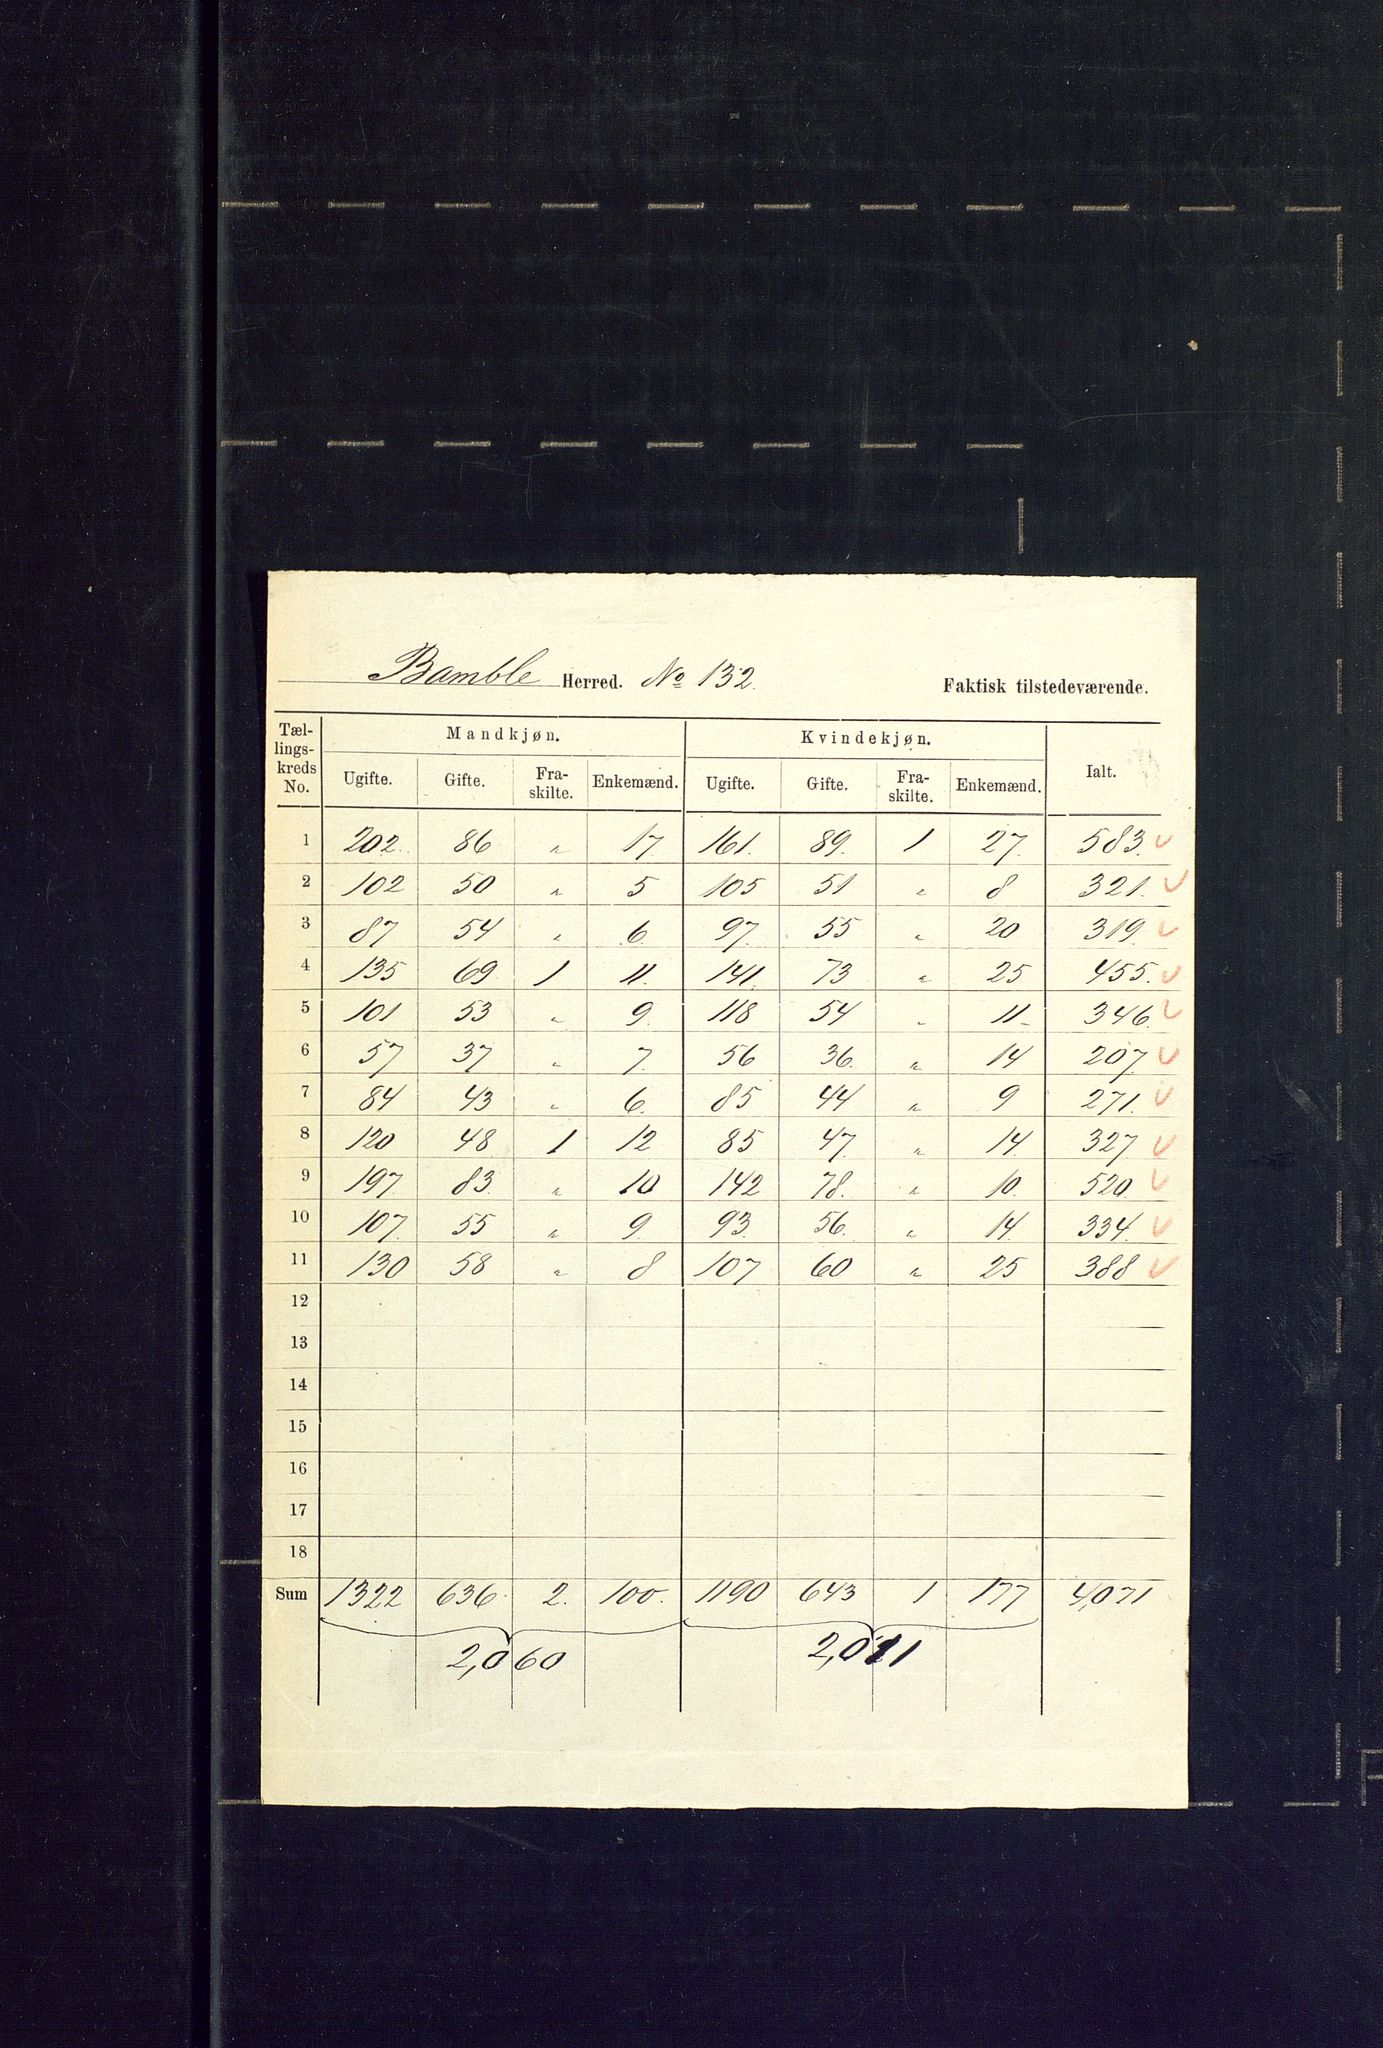 Bamble Herred. No 132. Faktisk tilstedeværende.
Tællingskreds No. Mandkjøn. Kvindekjøn. Ialt.
Ugifte. Gifte. Fraskilte. Enkemænd. Ugifte. Gifte. Fraskilte. Enkemænd.
1 202. 86 „ 17. 161. 89. 1 27. 583.
2 102 50 „ 5 105 51 „ 8 321.
3 87 54 „ 6. 97. 55 „ 20 319.
4 135 69. 1 11. 141. 73 „ 25 455.
5 101 53 „ 9. 118 54 „ 11 346.
6 57 37 „ 7. 56 36. „ 14 207
7 84 43 „ 6. 85 44 „ 9 271.
8 120 48 1 12 85 47. „ 14. 327
9 197. 83. „ 10 142 78. „ 10. 520.
10 107. 55 „ 9. 93. 56. „ 14. 334.
11 130 58 „ 8 107 60 „ 25 388
12
13
14
15
16
17
18
Sum 1322 636. 2. 100. 1190 643 1 177 4,071
2,060 2,011